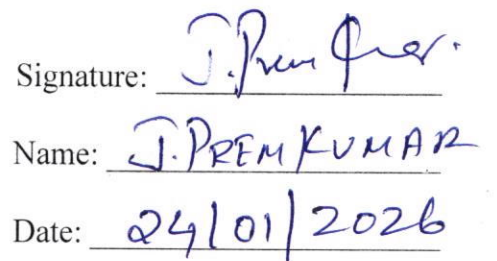 Signature: J. Prem Kumar.
Name: J. PREMKUMAR
Date: 24/01/2026